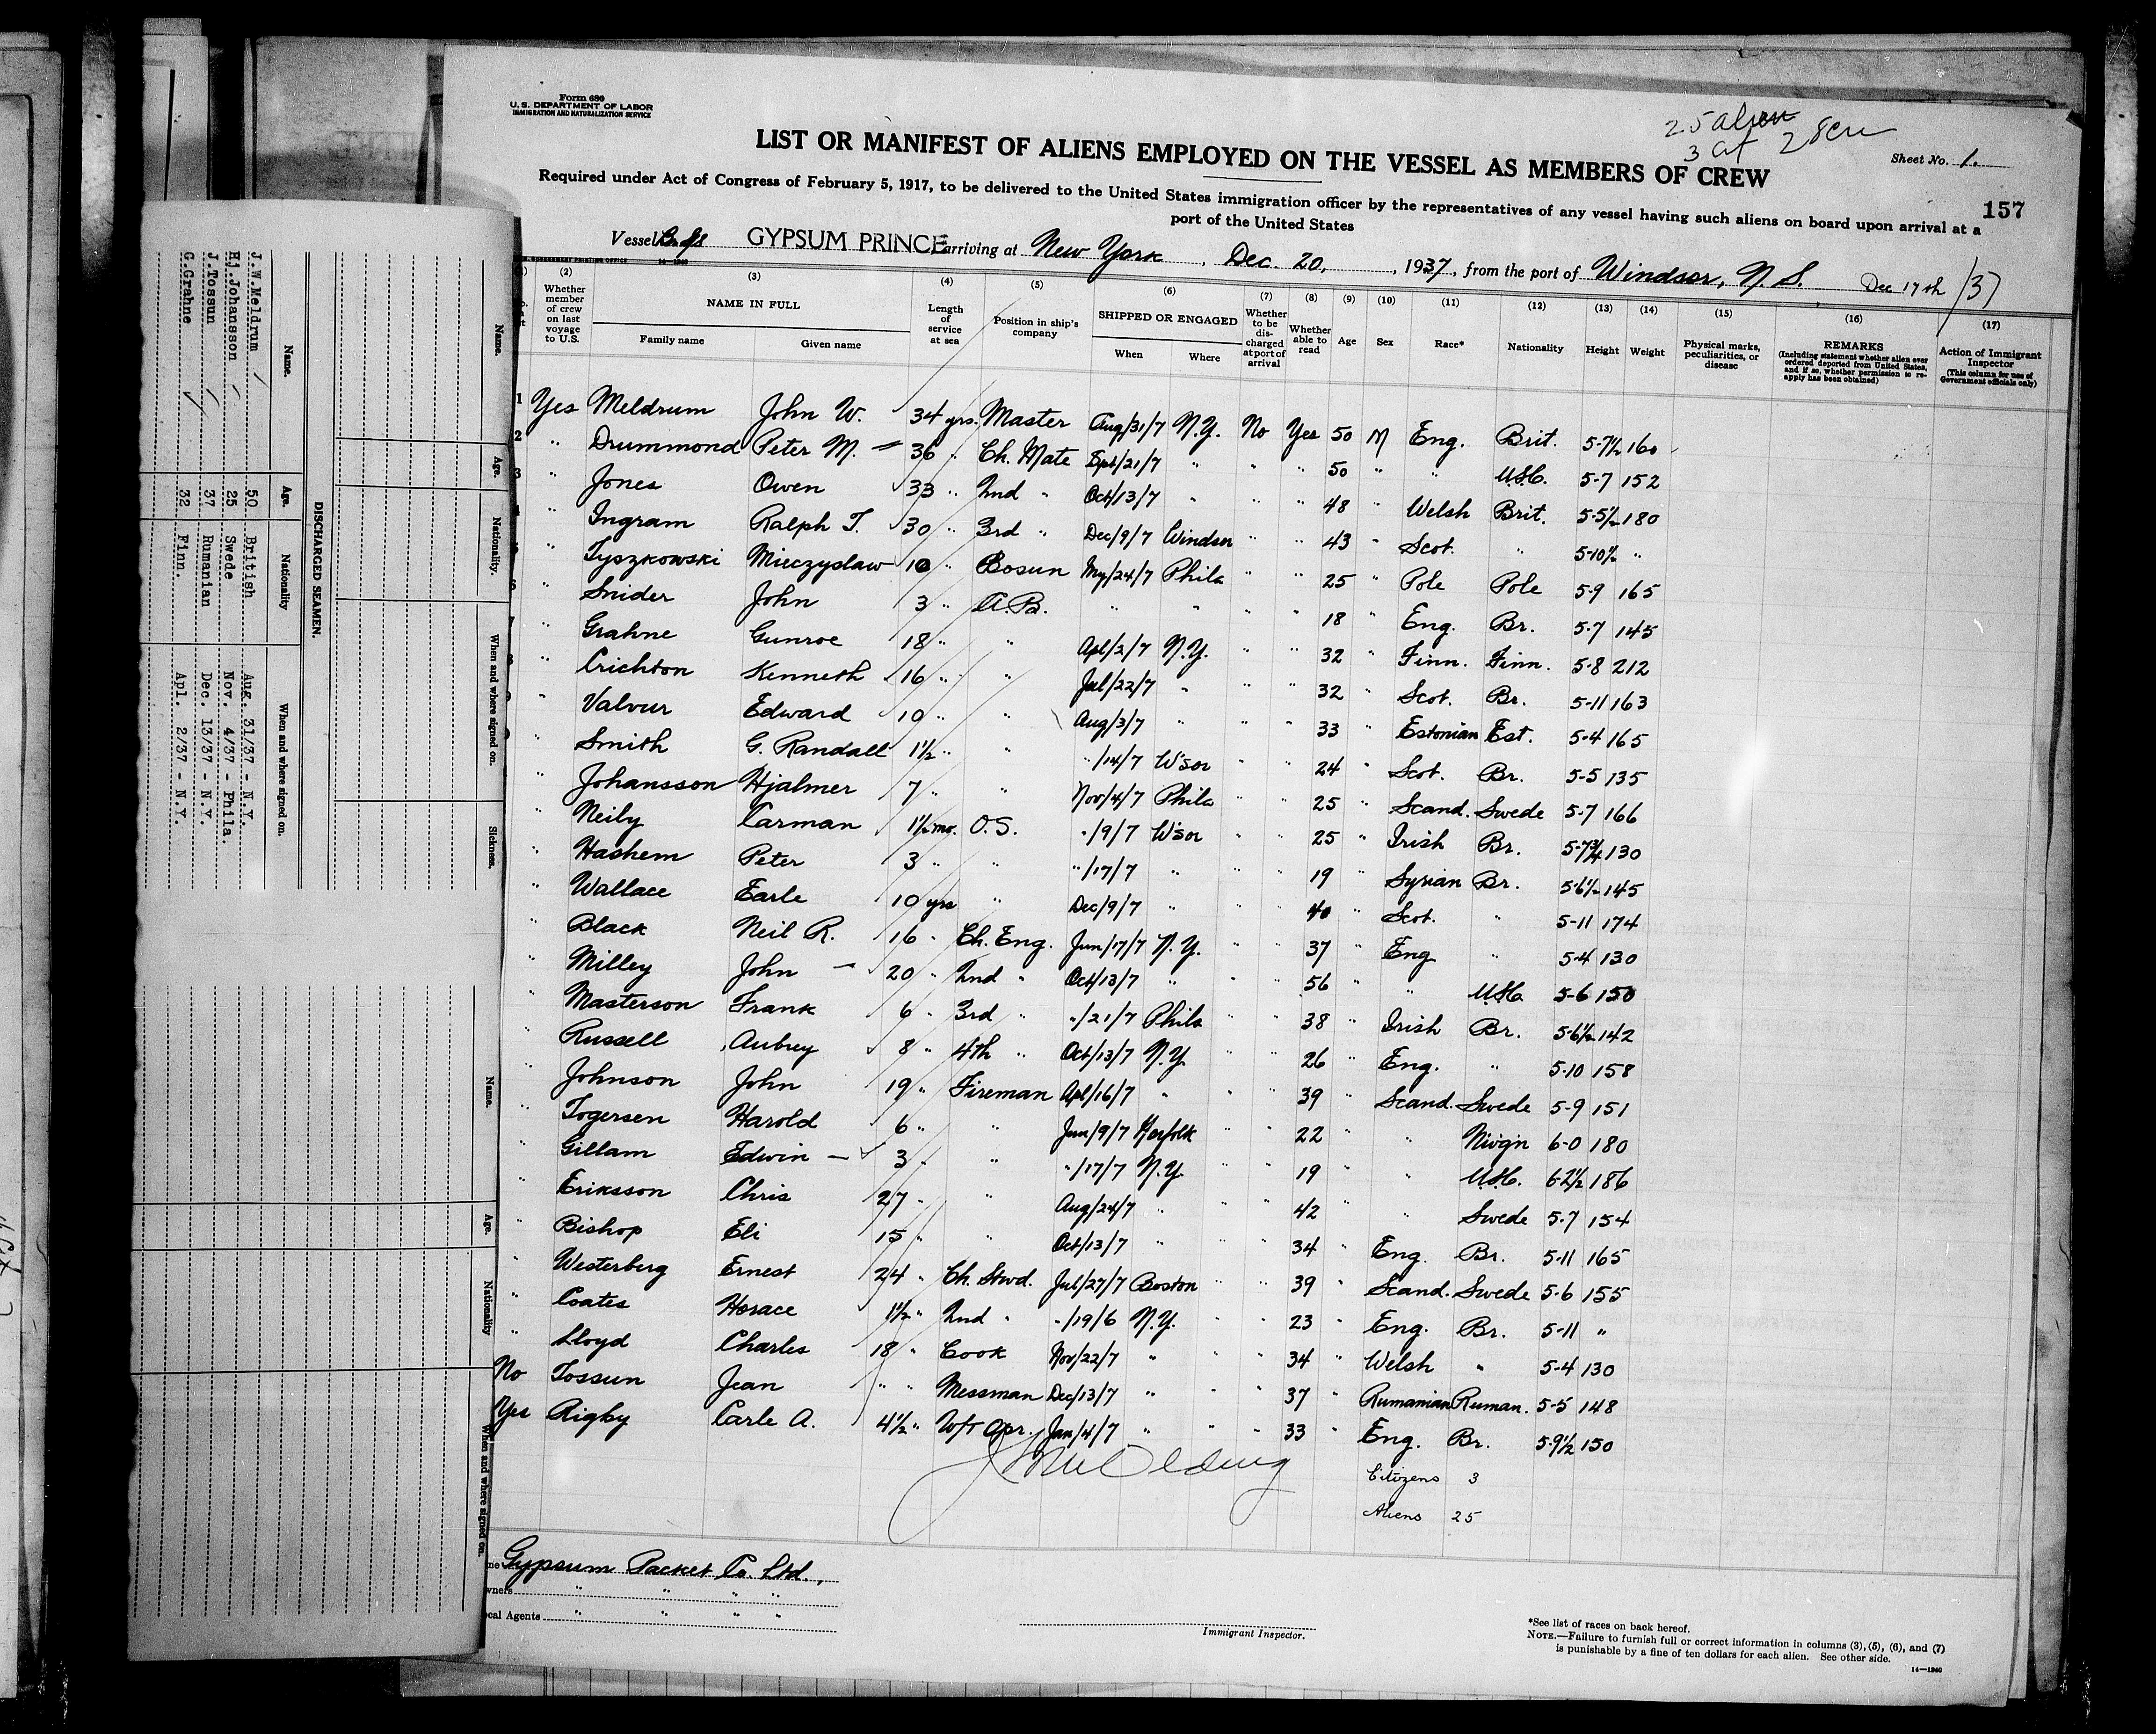 Form 680
U. S. DEPARTMENT OF LABOR
IMMIGRATION AND NATURALIZATION SERVICE
25 alien
3 cit 28
LIST OR MANIFEST OF ALIENS EMPLOYED ON THE VESSEL AS MEMBERS OF CREW
Sheet No. 1.
Required under Act of Congress of February 5, 1917, to be delivered to the United States immigration officer by the representatives of any vessel having such aliens on board upon arrival at a
port of the United States
157
Vessel GYPSUM PRINCE arriving at New York, Dec. 20, 1937, from the port of Windsor, N. S. Dec 17th /37
(2) (3) (4) (5) (6) (7) (8) (9) (10) (11) (12) (13) (14) (15) (16) (17)
Whether member of crew on last voyage to U.S. NAME IN FULL Family name Given name Length of service at sea Position in ship's company SHIPPED OR ENGAGED When Where Whether to be discharged at port of arrival Whether able to read Age Sex Race* Nationality Height Weight Physical marks, peculiarities, or disease REMARKS (Including statement whether alien ever ordered deported from United States, and if so, whether permission to reapply has been obtained) Action of Immigrant Inspector (This column for use of Government officials only)
1 Yes Meldrum John W. 34 yrs. Master Aug/31/7 N.Y. No Yes 50 M Eng. Brit. 5-7½ 160
2 " Drummond Peter M. 36 " Ch. Mate Sept/21/7 " " " 50 " " U.S.C. 5-7 152
3 " Jones Owen 33 " 2nd " Oct/13/7 " " " 48 " Welsh Brit. 5-5½ 180
" Ingram Ralph T. 30 " 3rd " Dec/9/7 Windsor " " 43 " Scot. " 5-10½ "
" Tyszkowski Mieczyslaw 10 " Bosun My/24/7 Phila " " 25 " Pole Pole 5-9 165
6 " Snider John 3 " A.B. " " " " 18 " Eng. Br. 5-7 145
" Grahne Gunroe 18 " " Apl/2/7 N.Y. " " 32 " Finn. Finn. 5-8 212
" Crichton Kenneth 16 " " Jul/22/7 " " " 32 " Scot. Br. 5-11 163
" Valvur Edward 10 " " Aug/3/7 " " " 33 " Estonian Est. 5-4 165
" Smith G. Randall 1½ " " " /14/7 W'sor " " 24 " Scot. Br. 5-5 135
" Johansson Hjalmer 7 " " Nov/4/7 Phila " " 25 " Scand. Swede 5-7 166
" Neily Carman 1½ mo. O.S. " /9/7 W'sor " " 25 " Irish Br. 5-7¾ 130
" Hashem Peter 3 " " " /17/7 " " " 19 " Syrian Br. 5-6½ 145
" Wallace Earle 10 yrs " Dec/9/7 " " " 40 " Scot. " 5-11 174
" Black Neil R. 16 " Ch. Eng. Jun/17/7 N.Y. " " 37 " Eng " 5-4 130
" Milley John 20 " 2nd " Oct/13/7 " " " 56 " " U.S.C. 5-6 150
" Masterson Frank 6 " 3rd " " /21/7 Phila " " 38 " Irish Br. 5-6½ 142
" Russell Aubrey 8 " 4th " Oct/13/7 N.Y. " " 26 " Eng. " 5-10 158
" Johnson John 19 " Fireman Apl/16/7 " " " 39 " Scand. Swede 5-9 151
" Togersen Harold 6 " " Jun/9/7 Norfolk " " 22 " " Nwgn 6-0 180
" Gillam Edwin 3 " " " /17/7 N.Y. " " 19 " " U.S.C. 6-2½ 186
" Eriksson Chris 27 " " Aug/24/7 " " " 42 " " Swede 5-7 154
" Bishop Eli 15 " " Oct/13/7 " " " 34 " Eng. Br. 5-11 165
" Westerberg Ernest 24 " Ch. Stwd. Jul/27/7 Boston " " 39 " Scand. Swede 5-6 155
" Coates Horace 1½ " 2nd " " /19/6 N.Y. " " 23 " Eng. Br. 5-11 "
" Lloyd Charles 18 " Cook Nov/22/7 " " " 34 " Welsh " 5-4 130
No Tossun Jean " " Messman Dec/13/7 " " " 37 " Rumanian Ruman. 5-5 148
Yes Rigby Carle A. 4½ " W/T Opr. Jan/4/7 " " " 33 " Eng. Br. 5-9½ 150
Citizens 3
Aliens 25
Gypsum Packet Co. Ltd.,
wners " " " "
cal Agents " " " "
Immigrant Inspector.
*See list of races on back hereof.
NOTE.—Failure to furnish full or correct information in columns (3), (5), (6), and (7)
is punishable by a fine of ten dollars for each alien. See other side.
14—1240
DISCHARGED SEAMEN.
Name. Age. Nationality When and where signed on.
J.W.Meldrum 50 British Aug. 31/37 - N.Y.
Hj.Johansson 25 Swede Nov. 4/37 - Phila.
J.Tossun 37 Rumanian Dec. 13/37 - N.Y.
G.Grahne 32 Finn. Apl. 2/37 - N.Y.
Name. Age. Nationality. When and where signed on. Sickness.
Name. Age. Nationality When and where signed on.